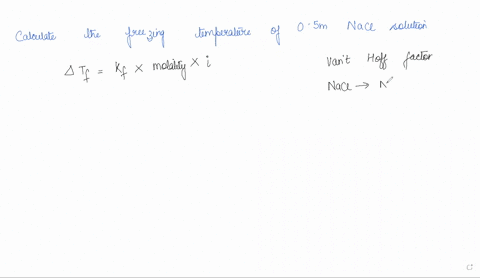 Calculate the freezing temperature of 0.5m NaCl solution
Δ Tf = Kf × molality × i
Van't Hoff factor
NaCl → N